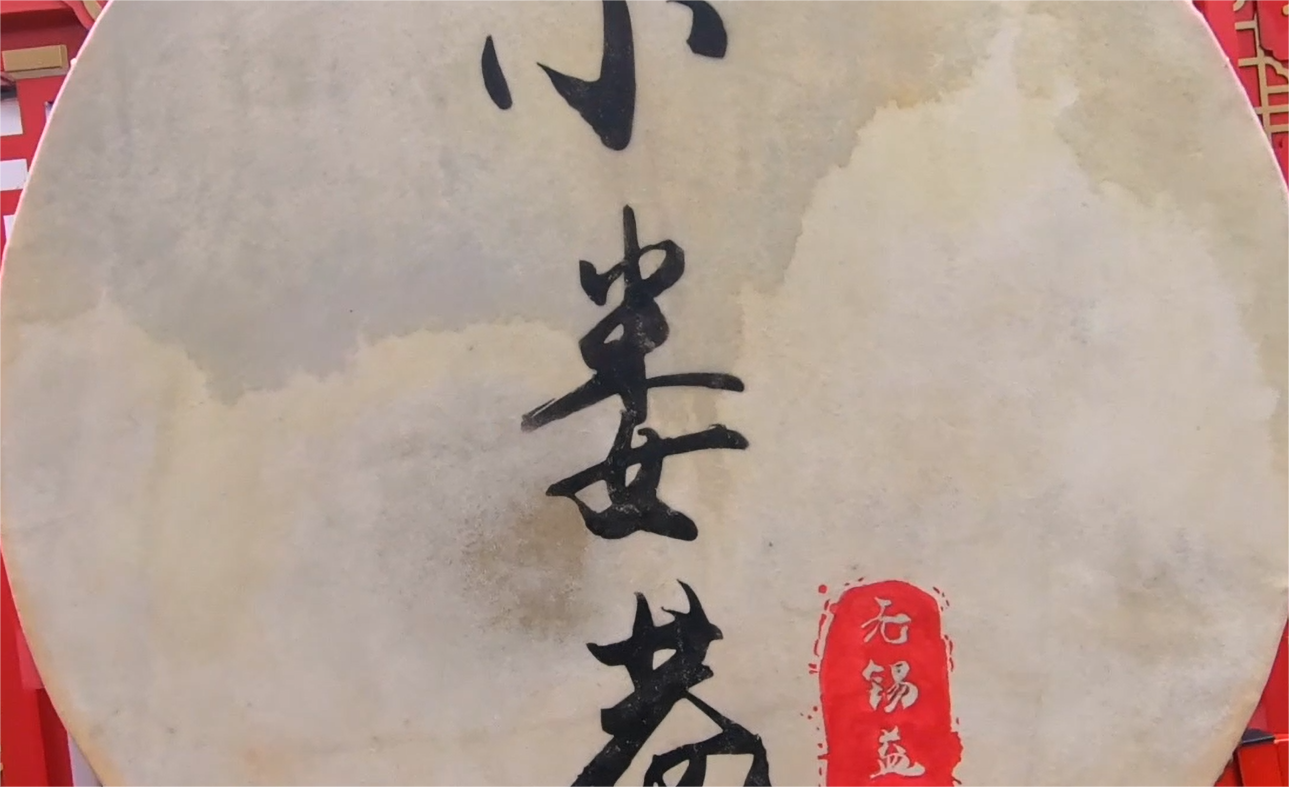 小娄巷
无锡益